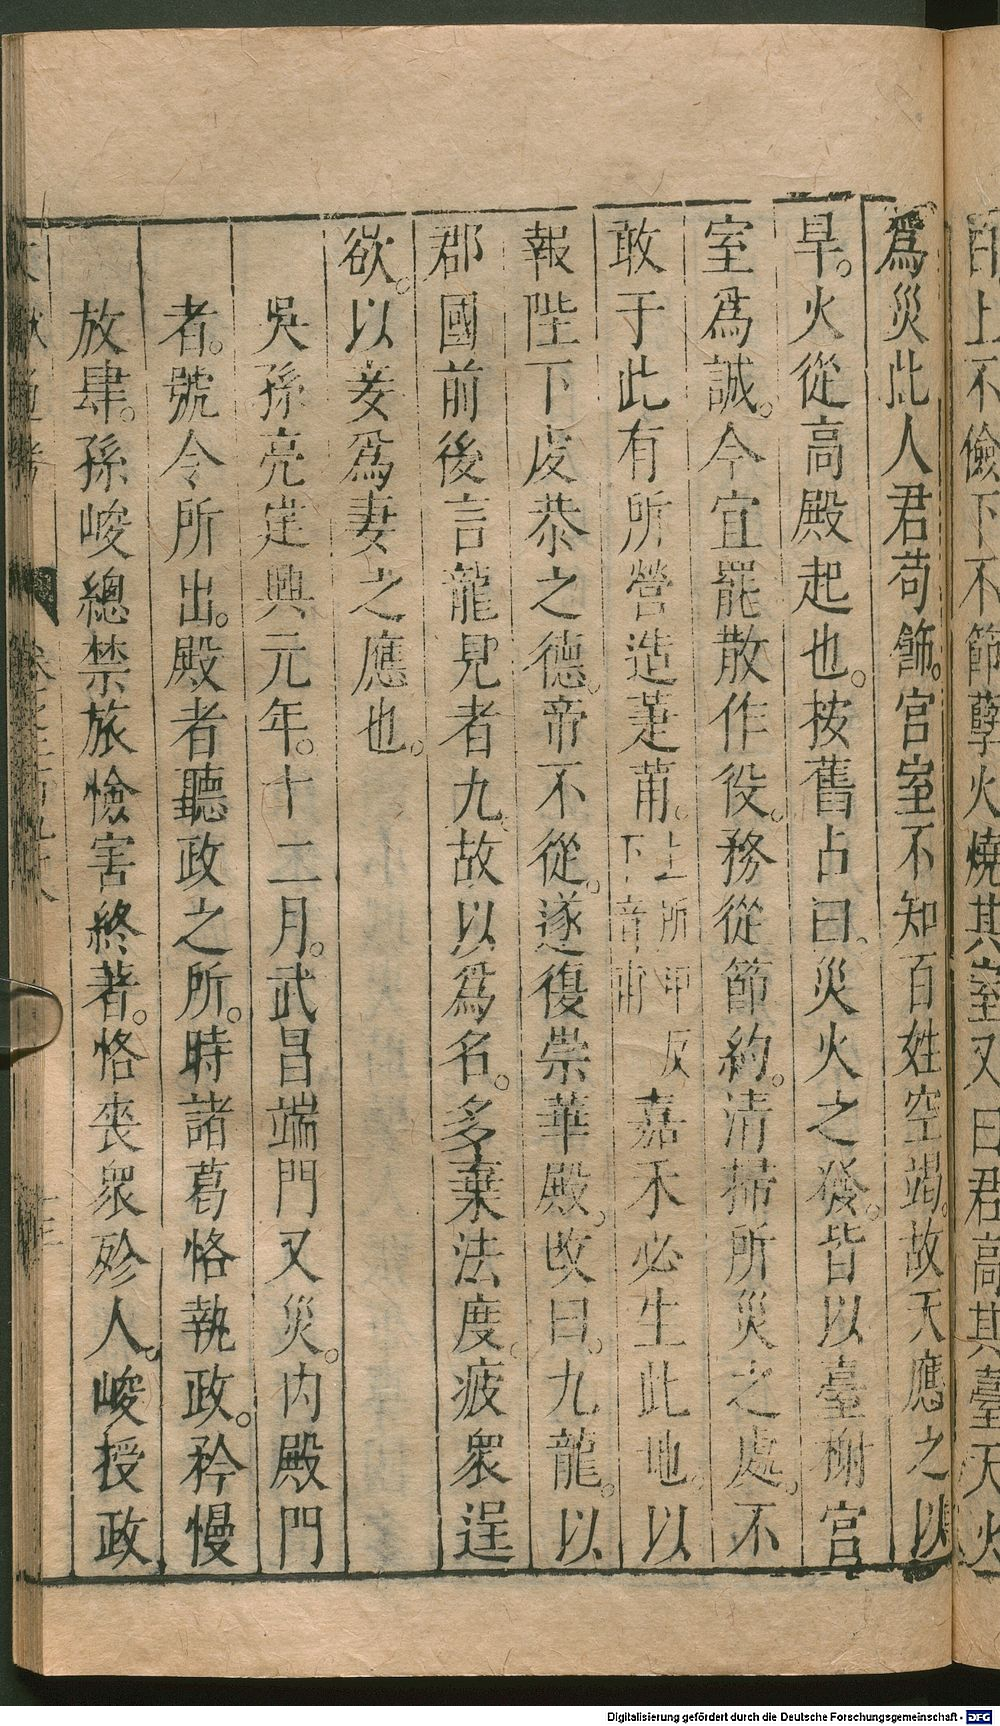 百上不儉下不節孽火燒其室又曰君高其臺天火
爲災此人君苟飾宫室不知百姓空竭故天應之以
旱火從高殿起也按舊占曰災火之發皆以臺榭宫
室爲誡今宜罷散作役務從節約清掃所災之處不
敢于此有所營造萐莆上所甲反下音甫嘉禾必生此地以
報陛下虔恭之德帝不從遂復崇華殿改曰九龍以
郡國前後言龍見者九故以爲名多棄法度疲衆逞
欲以妾爲妻之應也
吳孫亮建興元年十二月武昌端門又災内殿門
者號令所出殿者聽政之所時諸葛恪執政矜慢
放肆孫峻總禁旅險害終著恪喪衆殄人峻授政
Digitalisierung gefördert durch die Deutsche Forschungsgemeinschaft - DFG